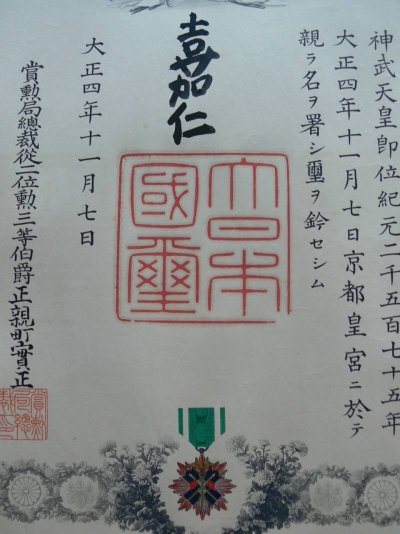 神武天皇卽位紀元二千五百七十五年
大正四年十一月七日京都皇宮ニ於テ
親ラ名ヲ署シ璽ヲ鈐セシム
嘉仁
大日本
國璽
大正四年十一月七日
賞勲局總裁從二位勲三等伯爵正親町實正